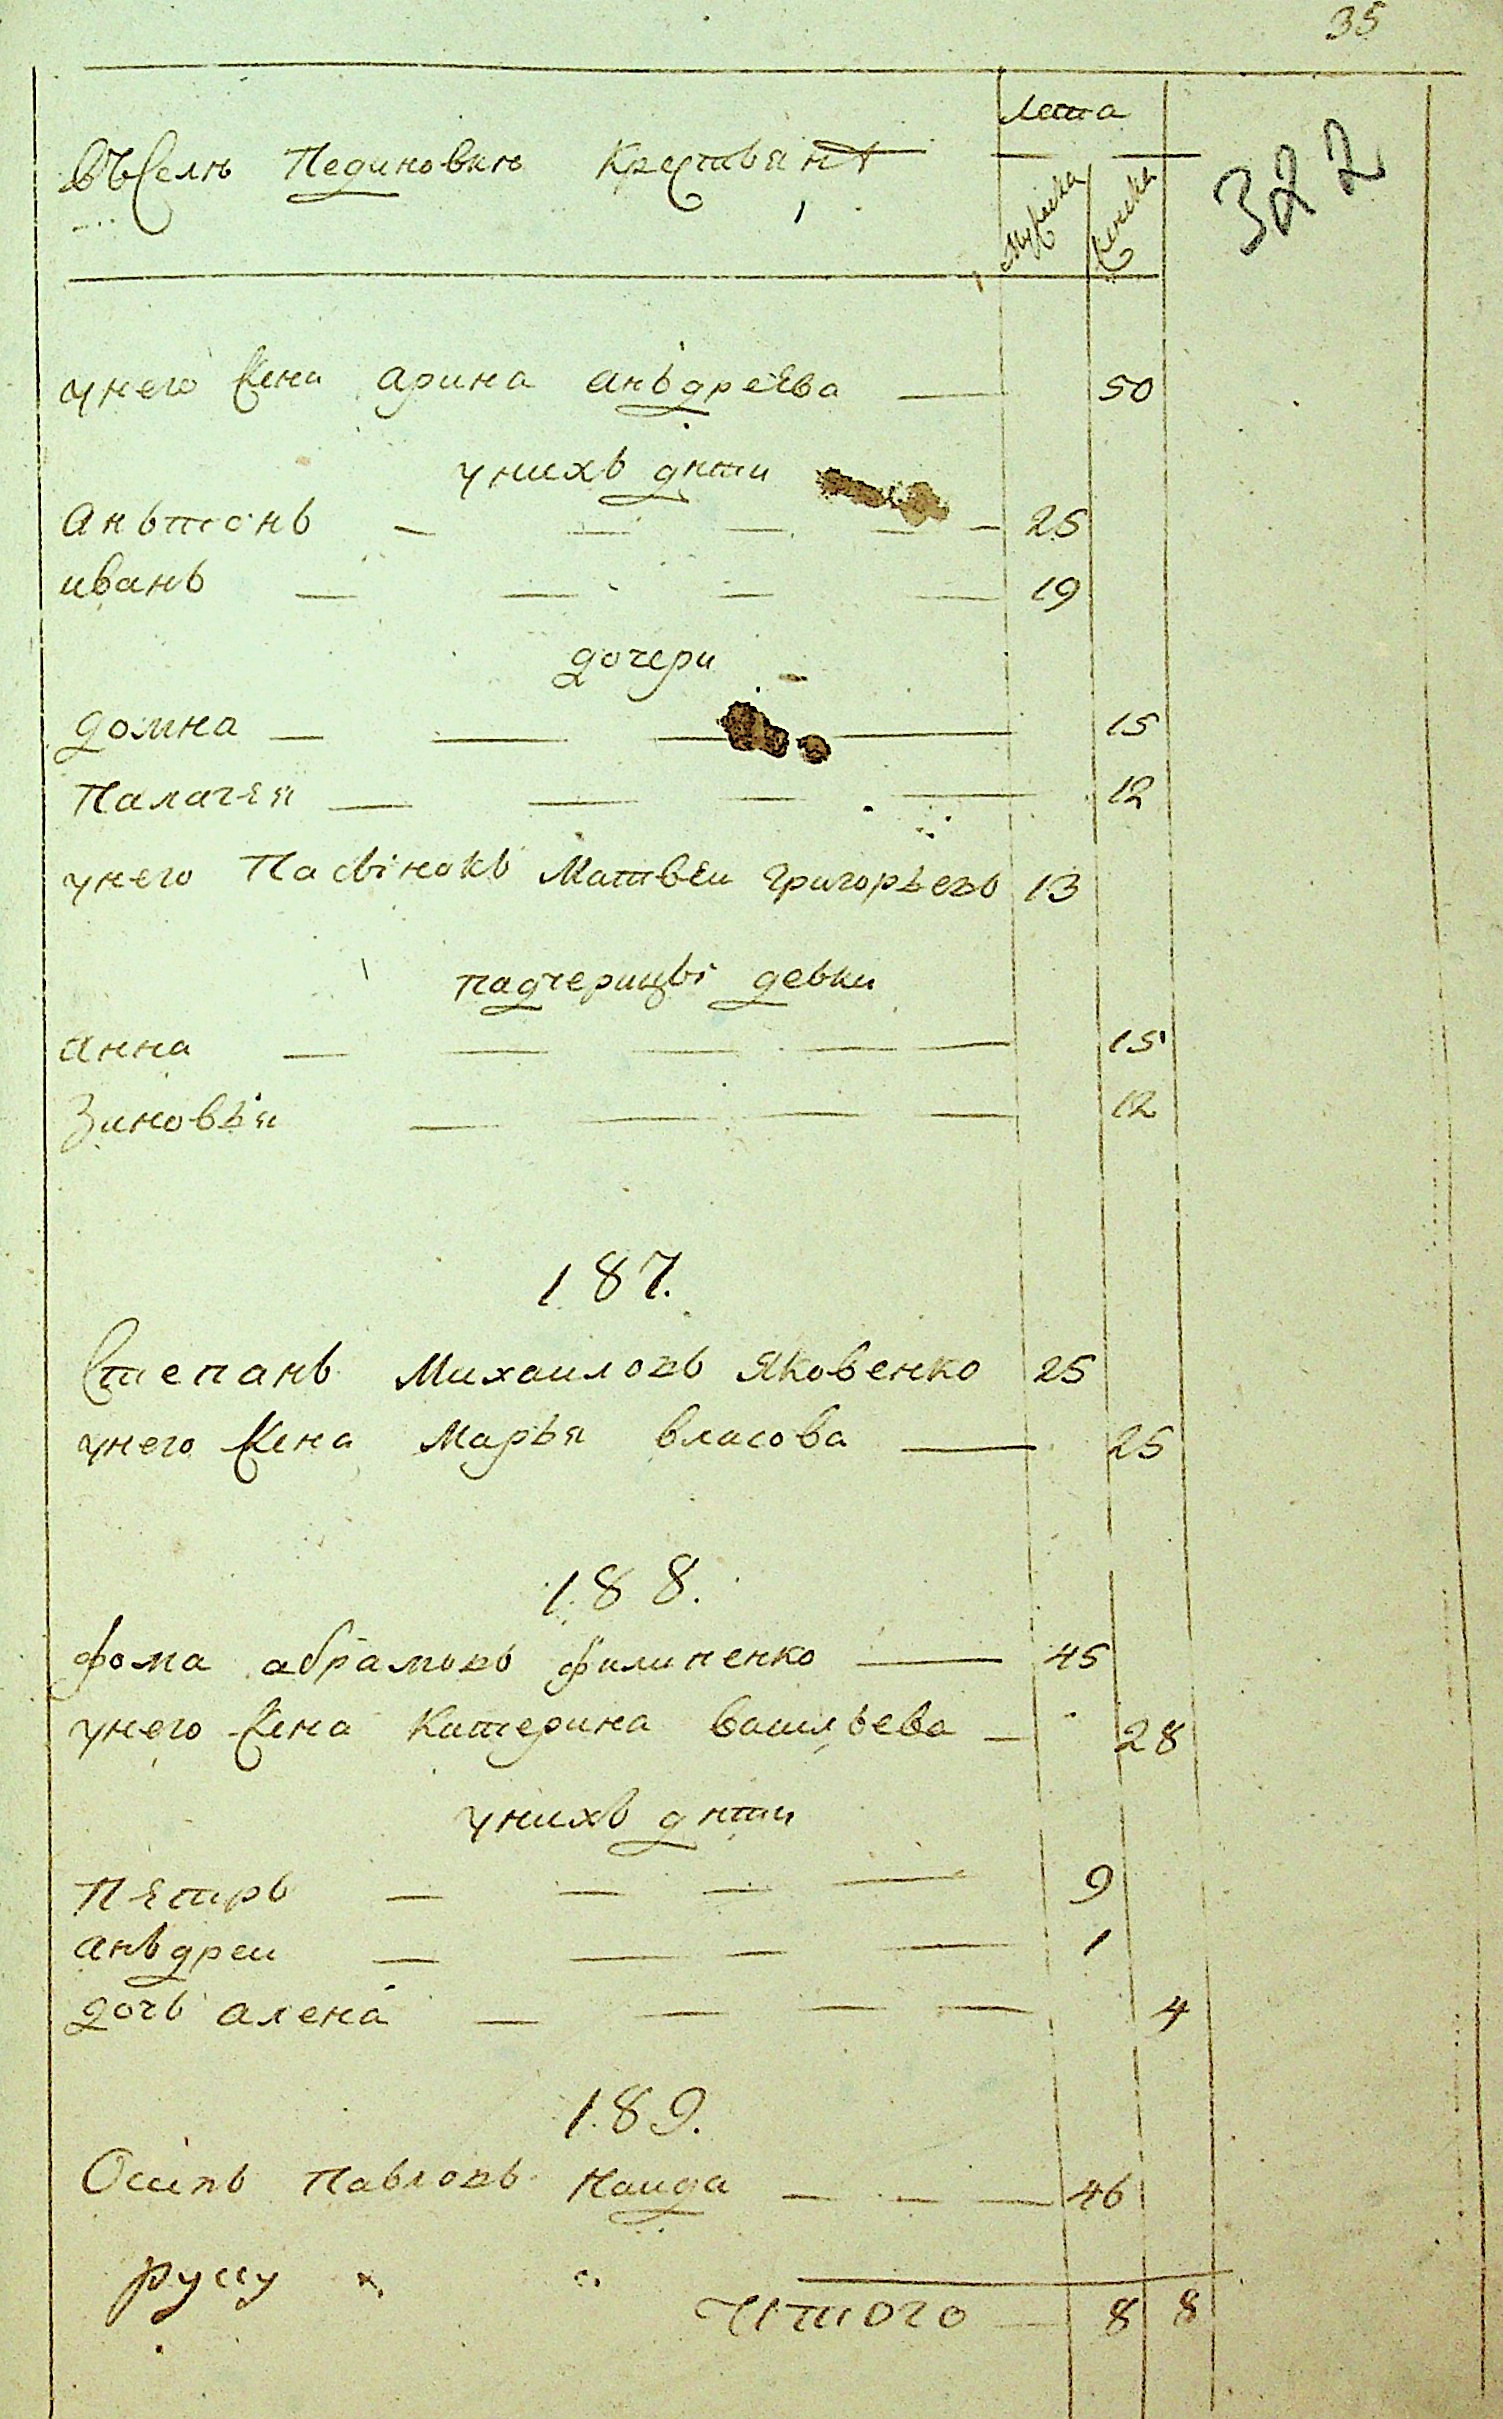 35
лета
въ Селѣ Пединовкѣ Крестьянъ
мужеска женска
322
унего жена арина анъдреева — 50
унихъ дѣти
анътонъ — 25
иванъ — 19
дочери
домна — 15
Палагея — 12
унего Пасынокъ Матвеи григорьевъ 13
падчерицы девки
анна — 15
Зиновья — 12
187.
Степанъ Михаиловъ Яковенко 25
унего жена Марья власова — 25
188.
фома абрамовъ филипенко — 45
унего жена катерина васильева — 28
унихъ дѣти
Петръ — 9
анъдреи — 1
дочь алена — 4
189.
Осипъ Павловъ Наида — 46
Итого — 8 8